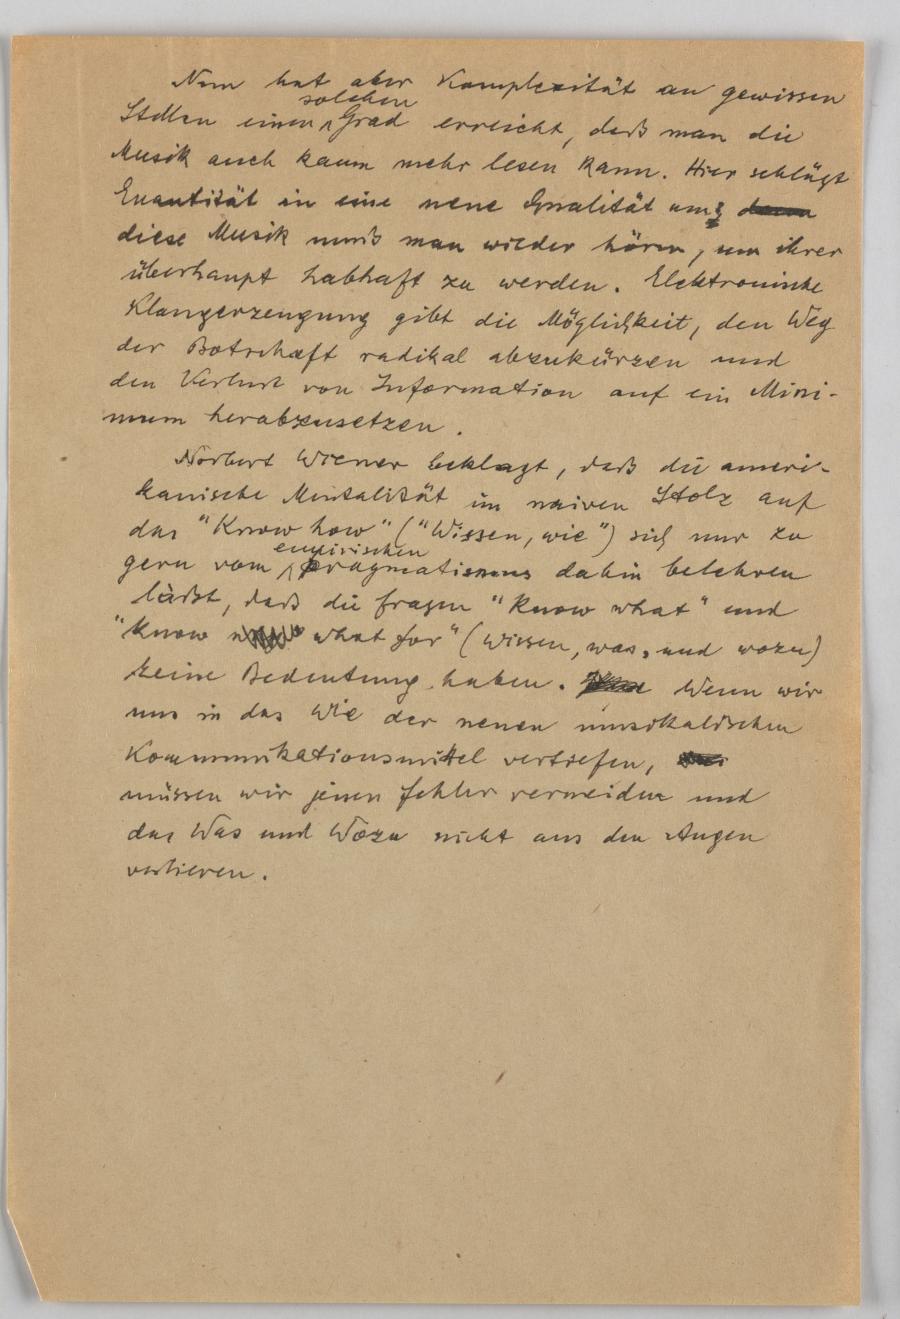 Nun hat aber Komplexität an gewissen
Stellen einen solchen Grad erreicht, daß man die
Musik auch kaum mehr lesen kann. Hier schlägt
Quantität in eine neue Qualität um;
diese Musik muß man wieder hören, um ihrer
überhaupt habhaft zu werden. Elektronische
Klangerzeugung gibt die Möglichkeit, den Weg
der Botschaft radikal abzukürzen und
den Verlust von Information auf ein Mini-
mum herabzusetzen.
Norbert Wiener beklagt, daß die ameri-
kanische Mentalität im naiven Stolz auf
das "Know how" ("Wissen, wie") sich nur zu
gern vom empirischen Pragmatismus dahin belehren
läßt, daß die Fragen "Know what" und
"Know what for" (Wissen, was, und wozu)
keine Bedeutung haben. Wenn wir
uns in das Wie der neuen musikalischen
Kommunikationsmittel vertiefen,
müssen wir jenen Fehler vermeiden und
das Was und Wozu nicht aus den Augen
verlieren.